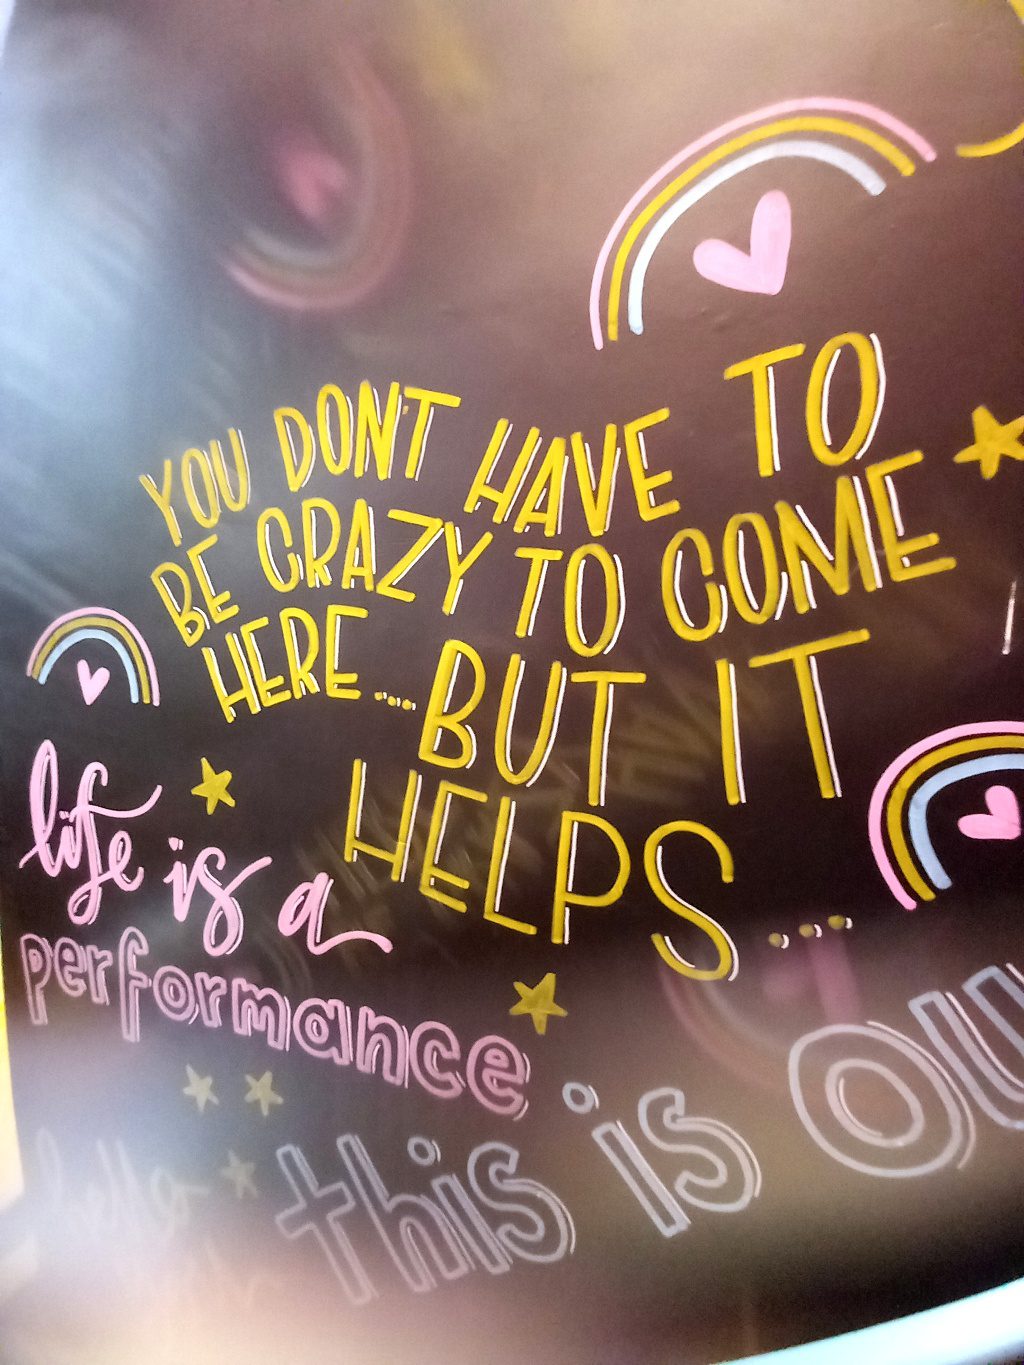 YOU DON'T HAVE TO
BE CRAZY TO COME
HERE....BUT IT
HELPS....
life is a
performance
hello
this is OU